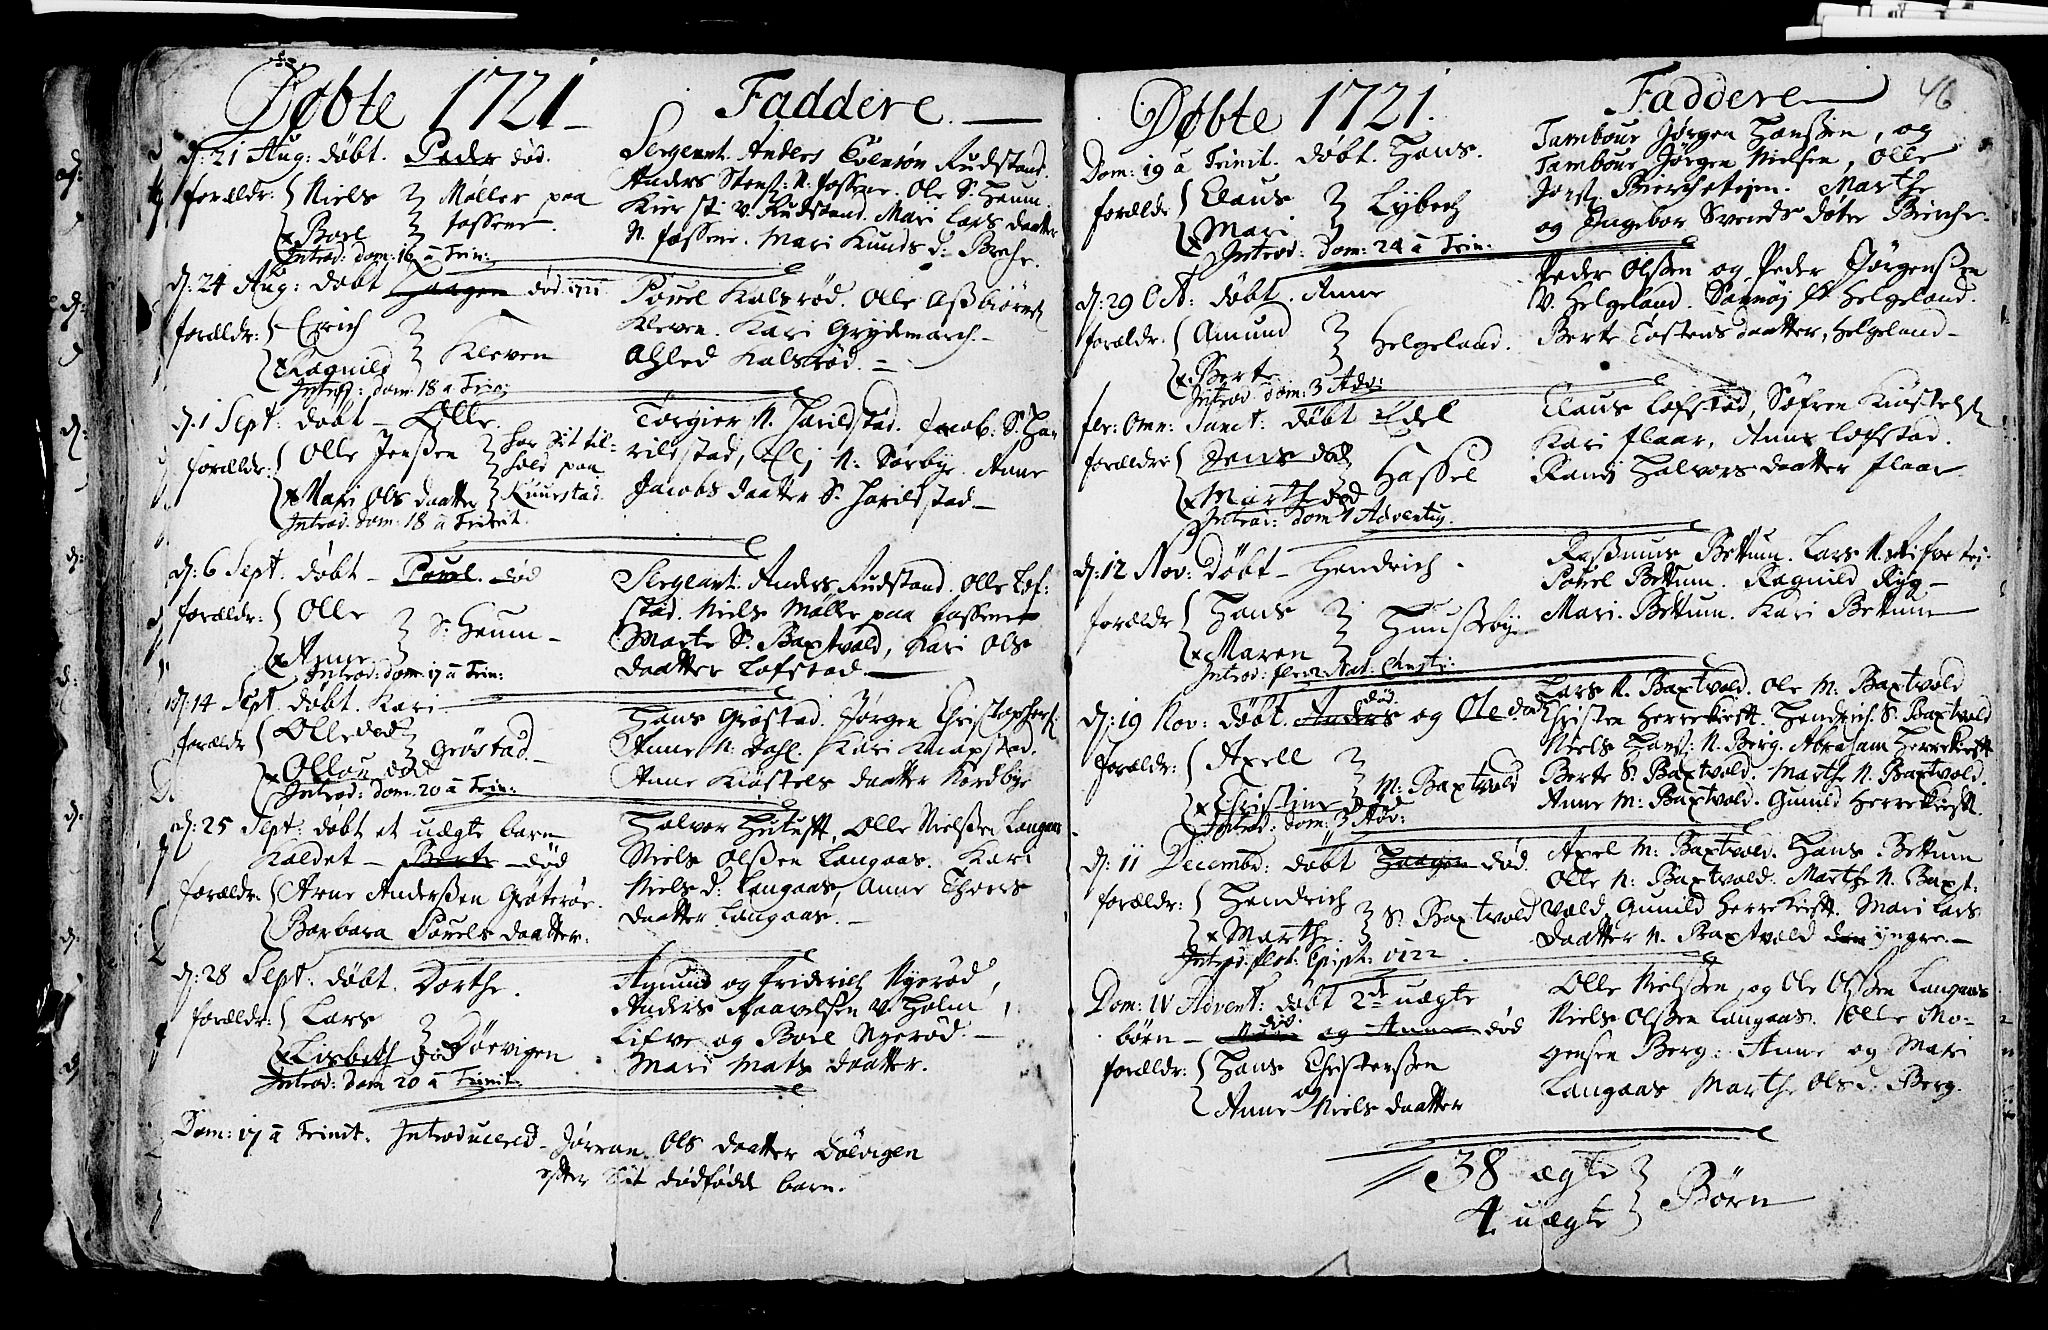 Døbte 1721
Faddere
d: 21 Aug: døbt. Peder død.
forældr: Niels Møller paa
x Boel fossene.
Introd: dom: 16 a Trin:
Sergeant. Anders Rudstand.
Anders N. fossene. Ole S. Heum.
Kiersti V. Rudstand. Mari Lars daatter
N. fossene. Mari Knuds d:
d: 24 Aug: døbt Haagen død 1721
forældr: Erich
x Ragnild Kleven
Introd: dom. 18 a Trin:
Pouel Kalsrød. Olle Asbiørns
Kleven. Kari Grydemarch
Kalsrød.
d. 1 Sept: døbt Olle.
forældr: Olle Jensen har sit til-
hold paa
x Mari Ols daatter Knurstad.
Introd: dom. 18 a Trinit.
Torgier N. Harildstad. Jacob: S. Ha-
rildstad, Elj N. Sørbye. Anne
Jacobs daatter S. Harildstad
d: 6 Sept: døbt Pouel. død
forældr: Olle S. Heum
x Anne
Introd: dom: 17 a Trin:
Sergeant. Anders Rudstand. Olle Lof-
stad. Niels Møller paa fossene
Marte S. Baxtvald, Kari Ols
daatter Lofstad.
d: 14 Sept. døbt. Kari
forældr Olle død Grøstad.
x Ollou død
Introd: dom. 20 a Trin:
Hans Grøstad. Jørgen Christophers:
Anne N: Dahl. Kari Knapstad.
Anne Kiøstels daatter Nordbye
d: 25 Sept: døbt et uægte barn
Kaldet Berte død
forældr: Arne Andersen Grøterør.
Barbara Pouels daatter.
Halvor, Olle Nielsen Langaas
Niels Olssen Langaas. Kari
Niels d: Langaas, Anne Thores
daatter Langaas.
d: 28 Sept: døbt. Dorthe.
forældr: Lars
x Lisbeth død Dørvigen
Introd: dom 20 a Trinit.
Amund og Friderich Nyerød,
Anders Paavelsen V. Holm,
Lifve og Boel Nyerød.
Mari Mats daatter.
Dom: 17 a Trinit. Introducered Jørran Ols daatter Dølvigen
efter Sit dødfødde barn.
Døbte 1721.
Faddere
46
Dom: 19 a Trinit. døbt. Hans.
forældr Claus Lybech
x Mari
Introd: dom: 24 a Trin:
Tambour Jørgen Hansen, og
Tambour Jørgen Nielsen, Olle
Jons Marthe
og Ingebor Svends døtre
d: 29 Oct: døbt. Anne
forældr. Amund Helgeland.
x. Berte
Introd dom: 3 Adv:
Peder Olssen og Peder Jørgensen
V. Helgeland. Helgeland.
Berte Tostens daatter, Helgeland
fer: Omn: Sanct: døbt Edel
forældre Jens død Hassel
x Marthe død
Introd: dom 1 Adventus.
Claus Lofstad, Søfren
Kari flaar, Anne Lofstad.
Randj Halvors daatter flaar
d: 12 Nov: døbt Hendrich.
forældr Hans
x Maren
Rasmus Bøttum. Lars N.
Pouel Bøttum. Ragnild Ryg
Mari. Bøttum. Kari Bøttum
d: 19 Nov: døbt. Anders død og Ole død
forældr: Axell M: Baxtvald
x Christine død
Introd: dom: 3 Adv:
Lars N. Baxtvald. Ole M: Baxtvald
Christen Herrekiestt. Hendrich. S. Baxtvald
Niels Hans: N. Berg. Abraham Herrekiestt
Berte S. Baxtvald. Marthe N. Baxtvald.
Anne M: Baxtvald. Gunild Herrekiestt.
d: 11 Decembr: døbt Haagen død
forældr: Hendrich S. Baxtvald
x Marthe
Introd: fest: Epiph: 1722.
Axel M: Baxtvald. Hans Bøttum
Olle N: Baxtvald. Marthe N. Baxt-
vald Gunild Herrekiestt. Mari Lars
daatter N. Baxtvald den yngre.
Dom: IV Advent: døbt 2de uægte
børn og Anne død
forældr: Hans Christensen
og
Anne Niels daatter
Olle Nielssen, og Ole Olssen Langaas
Niels Olssen Langaas. Olle Mo-
gensen Berg: Anne og Mari
Langaas Marthe Ols d: Berg.
38 ægte
4 uægte Børn